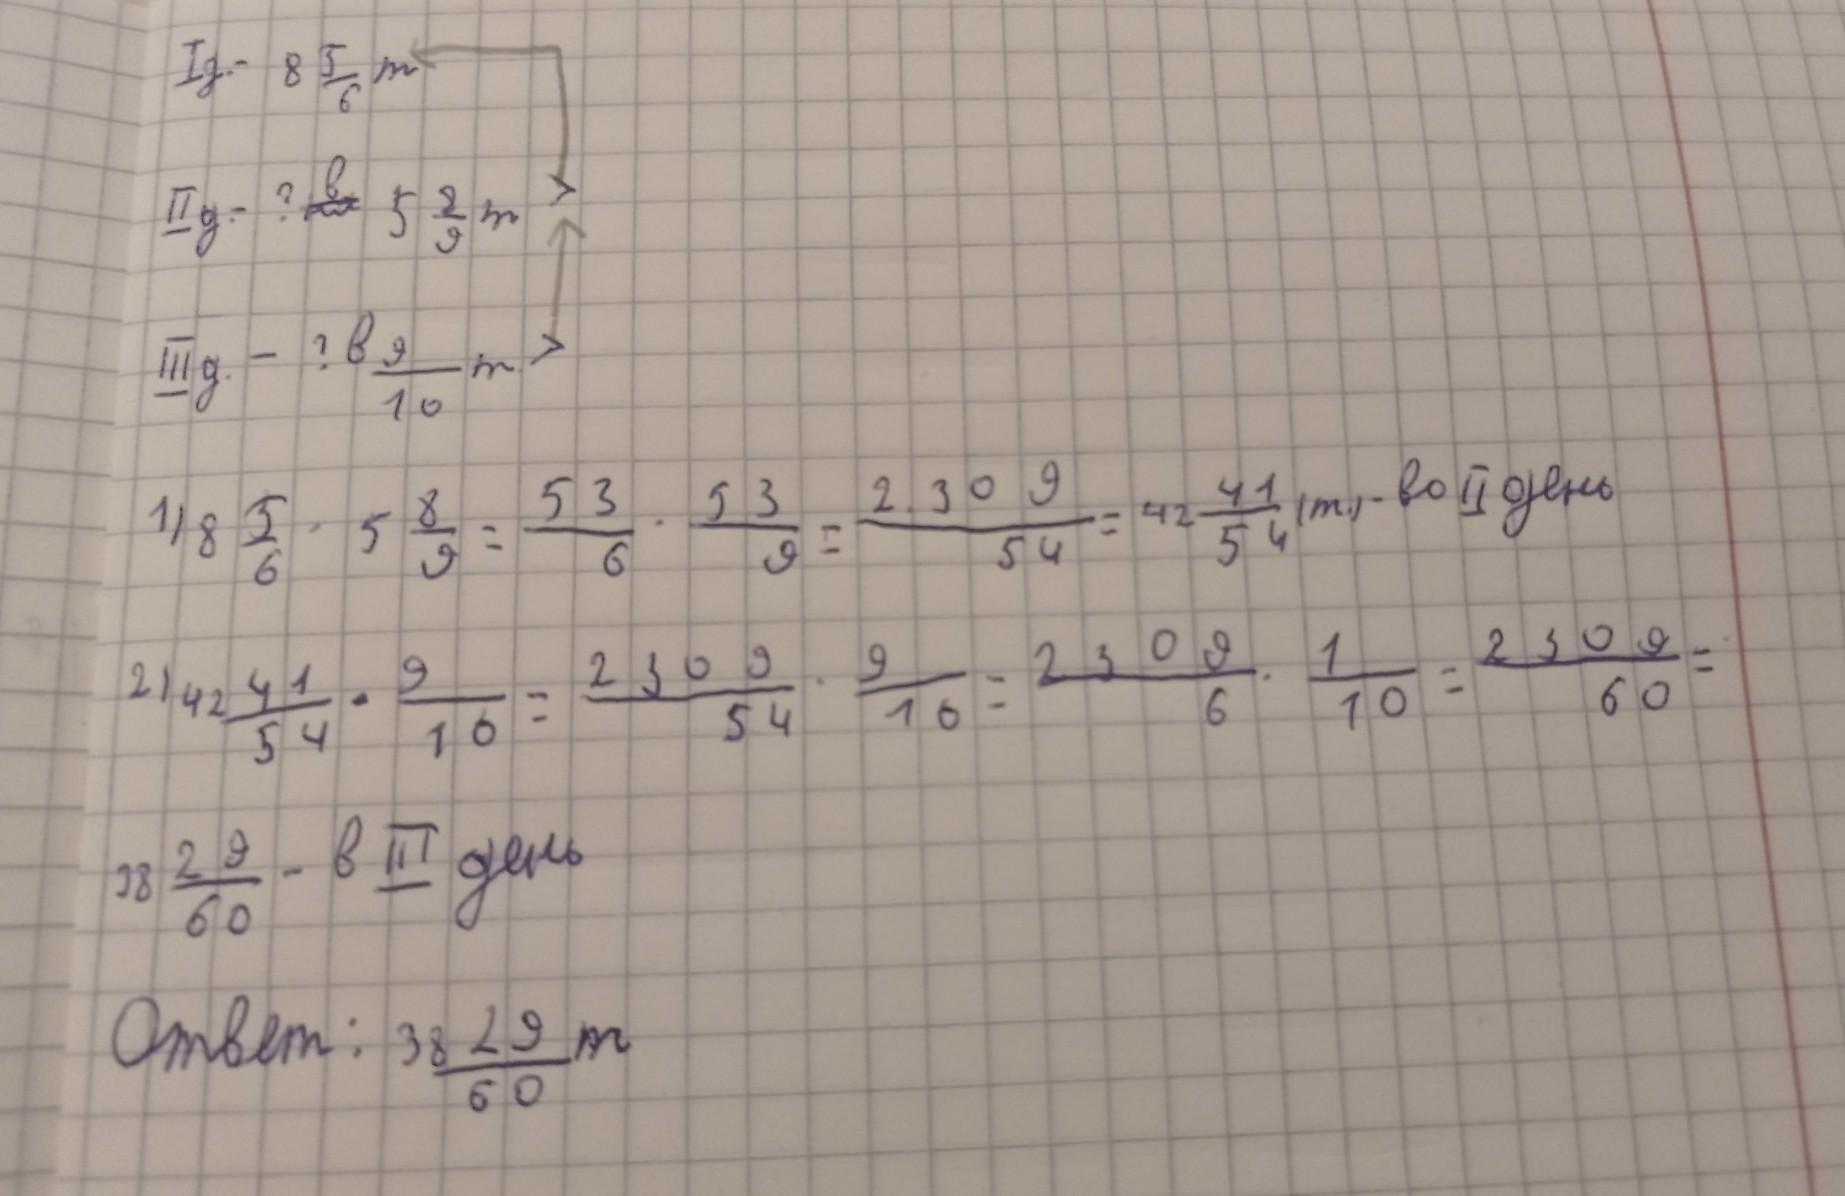 I д. - 8 5/6 т
II д. - ? в 5 8/9 т >
III д. - ? в 9/10 т >
1) 8 5/6 · 5 8/9 = 53/6 · 53/9 = 2309/54 = 42 41/54 (т.) - во II день
2) 42 41/54 · 9/10 = 2309/54 · 9/10 = 2309/6 · 1/10 = 2309/60 =
38 29/60 - в III день
Ответ: 38 29/60 т